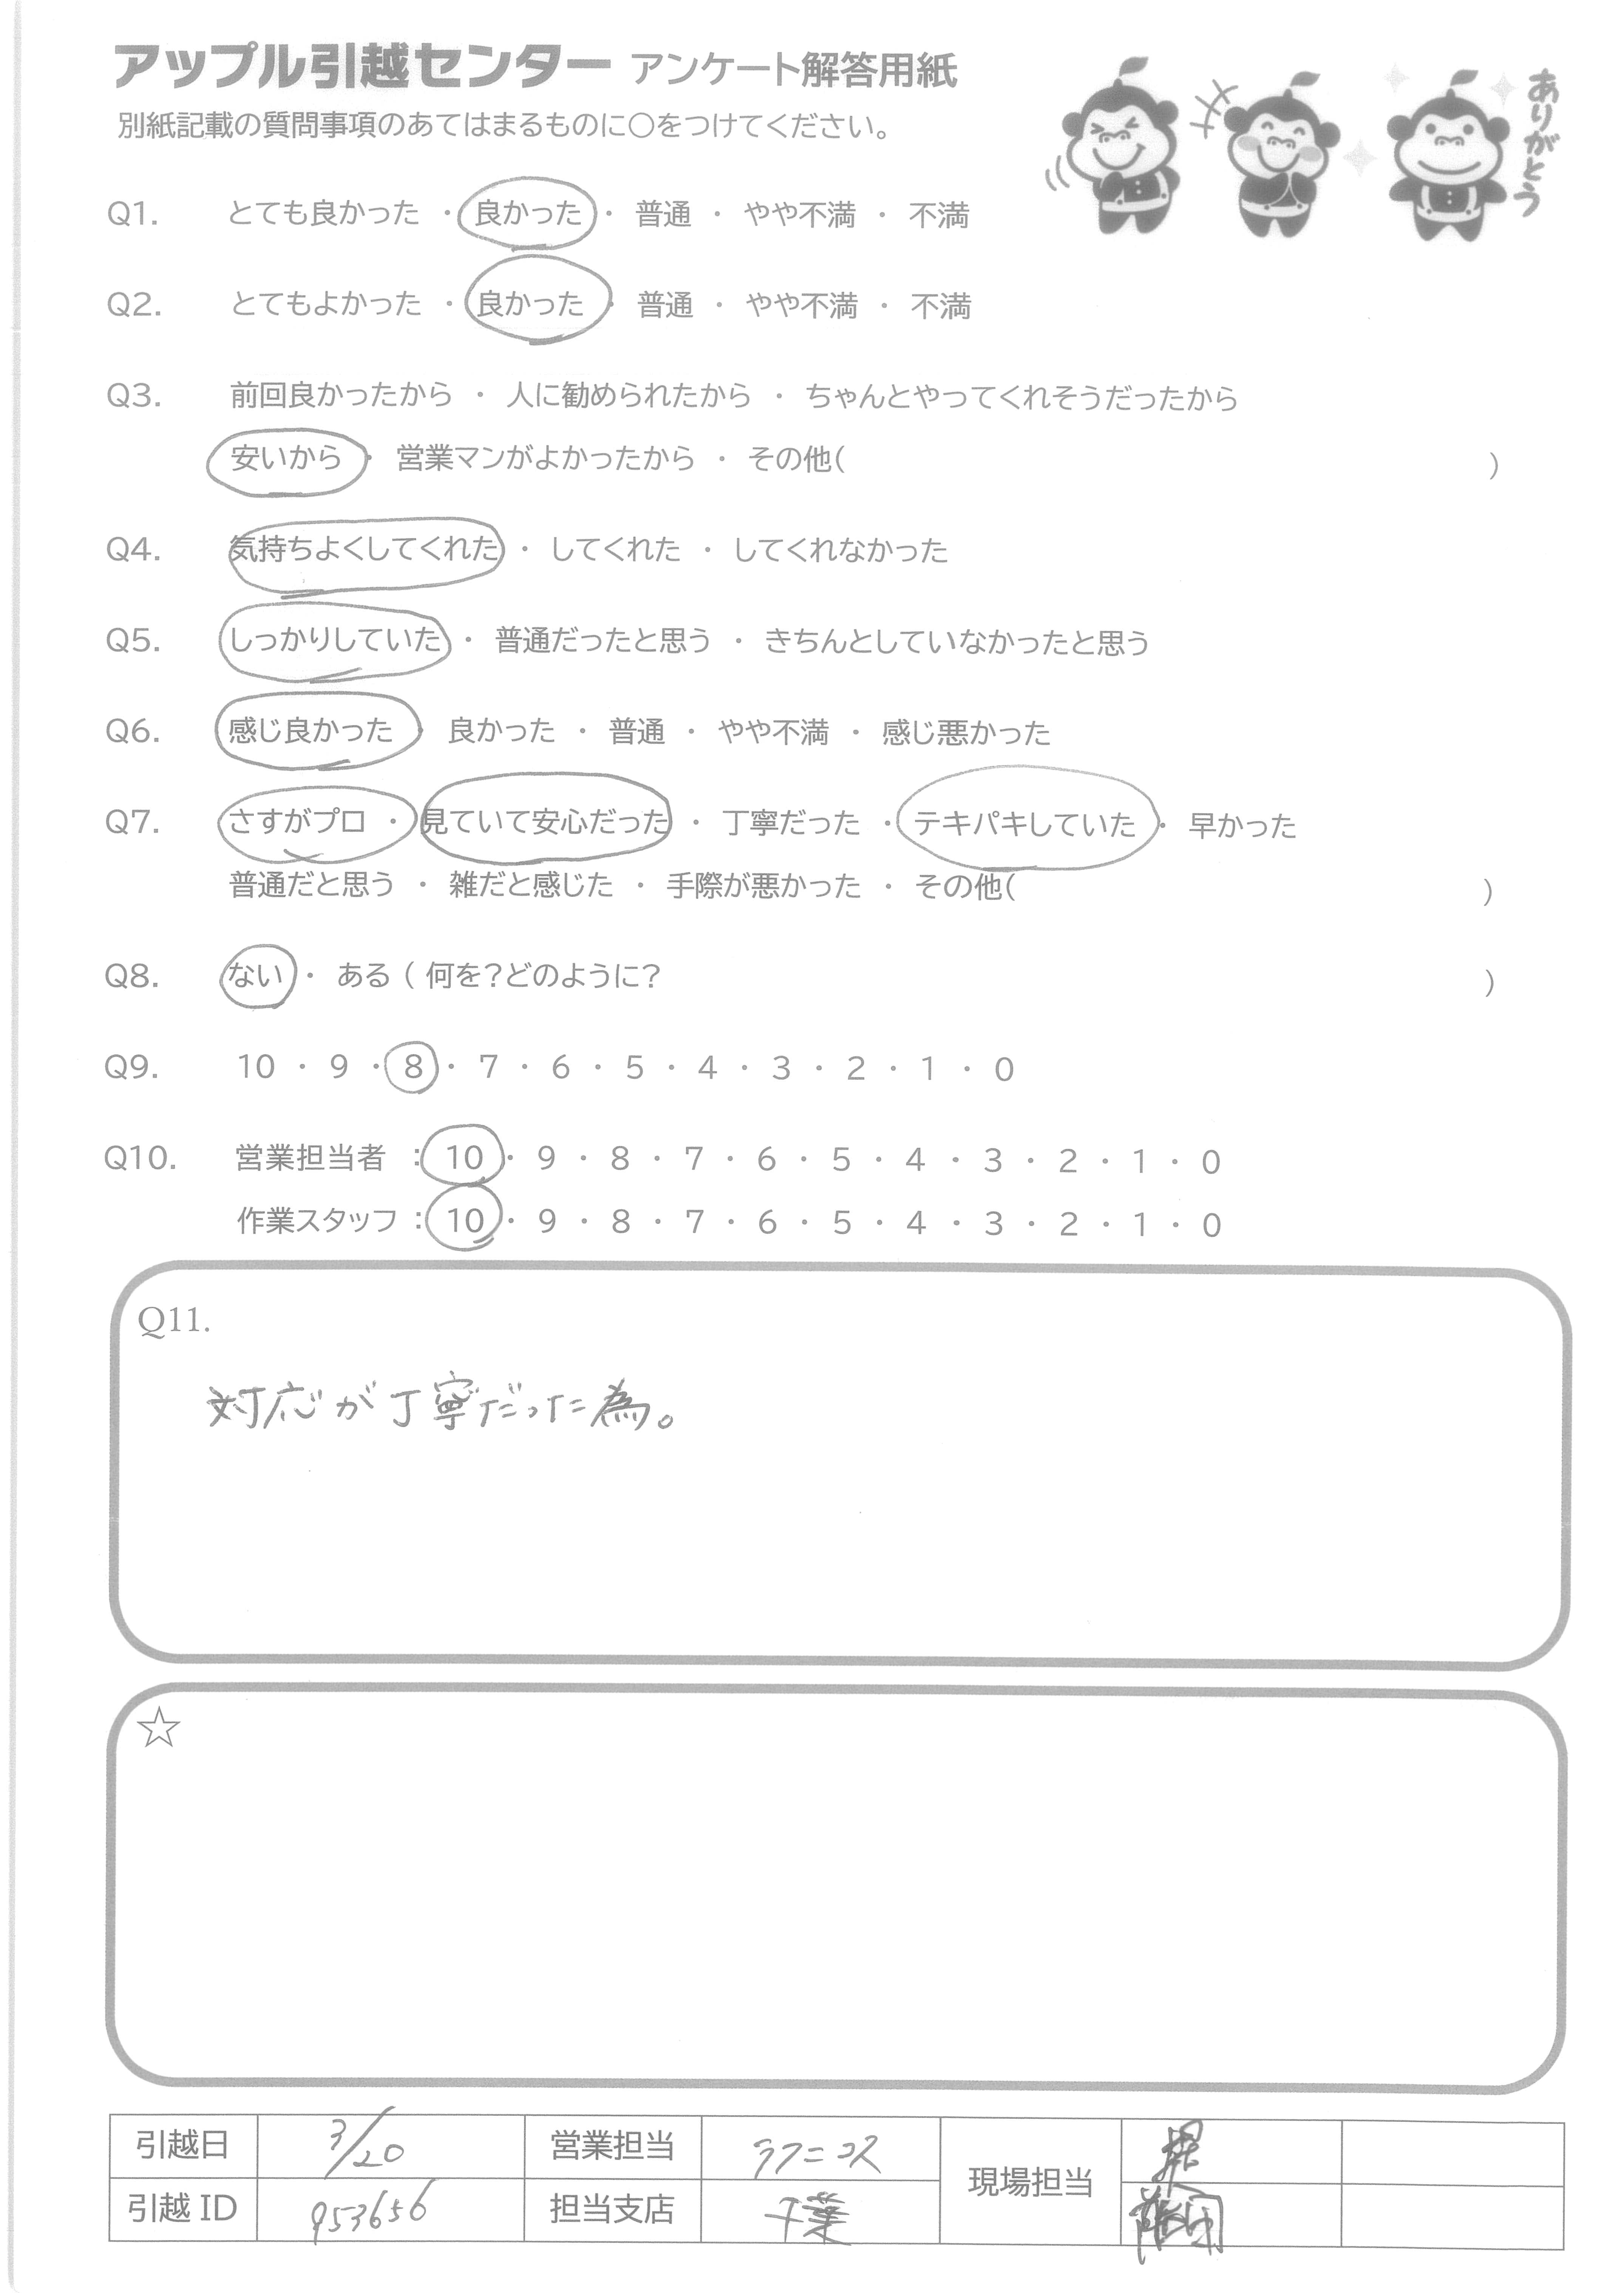 アップル引越センター アンケート解答用紙
別紙記載の質問事項のあてはまるものに○をつけてください。
ありがとう
Q1. とても良かった ・ 良かった ・ 普通 ・ やや不満 ・ 不満
Q2. とてもよかった ・ 良かった ・ 普通 ・ やや不満 ・ 不満
Q3. 前回良かったから ・ 人に勧められたから ・ ちゃんとやってくれそうだったから
安いから ・ 営業マンがよかったから ・ その他( )
Q4. 気持ちよくしてくれた ・ してくれた ・ してくれなかった
Q5. しっかりしていた ・ 普通だったと思う ・ きちんとしていなかったと思う
Q6. 感じ良かった ・ 良かった ・ 普通 ・ やや不満 ・ 感じ悪かった
Q7. さすがプロ ・ 見ていて安心だった ・ 丁寧だった ・ テキパキしていた ・ 早かった
普通だと思う ・ 雑だと感じた ・ 手際が悪かった ・ その他( )
Q8. ない ・ ある ( 何を?どのように? )
Q9. 10 ・ 9 ・ 8 ・ 7 ・ 6 ・ 5 ・ 4 ・ 3 ・ 2 ・ 1 ・ 0
Q10. 営業担当者 : 10 ・ 9 ・ 8 ・ 7 ・ 6 ・ 5 ・ 4 ・ 3 ・ 2 ・ 1 ・ 0
作業スタッフ : 10 ・ 9 ・ 8 ・ 7 ・ 6 ・ 5 ・ 4 ・ 3 ・ 2 ・ 1 ・ 0
Q11.
対応が丁寧だった為。
☆
引越日 3/20 営業担当 現場担当
引越 ID 953656 担当支店 千葉